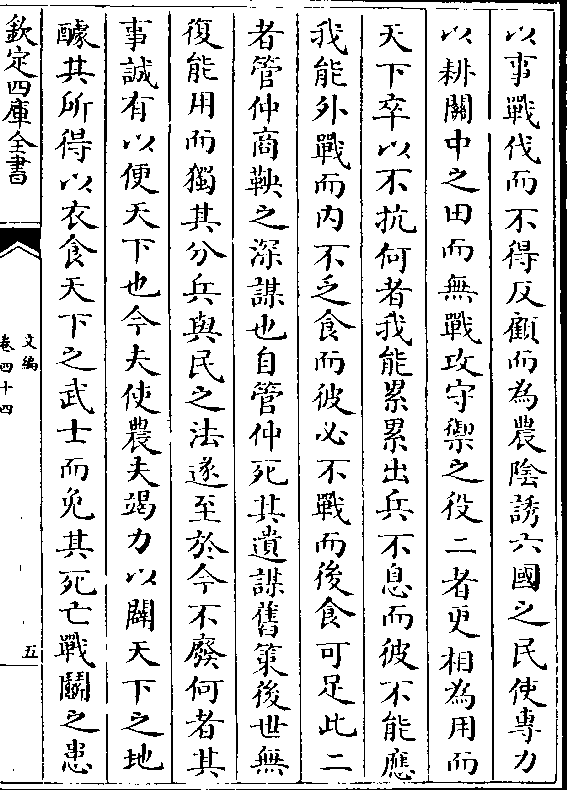 以事戰伐而不得反顧而為農陰誘六國之民使專力
以耕關中之田而無戰攻守禦之役二者更相為用而
天下卒以不抗何者我能累累出兵不息而彼不能應
我能外戰而内不乏食而彼必不戰而後食可足此二
者管仲商鞅之深謀也自管仲死其遺謀舊策後世無
復能用而獨其分兵與民之法遂至於今不廢何者其
事誠有以便天下也今夫使農夫竭力以闢天下之地
醵其所得以衣食天下之武士而免其死亡戰鬭之患
欽定四庫全書
文編
卷四十四
五